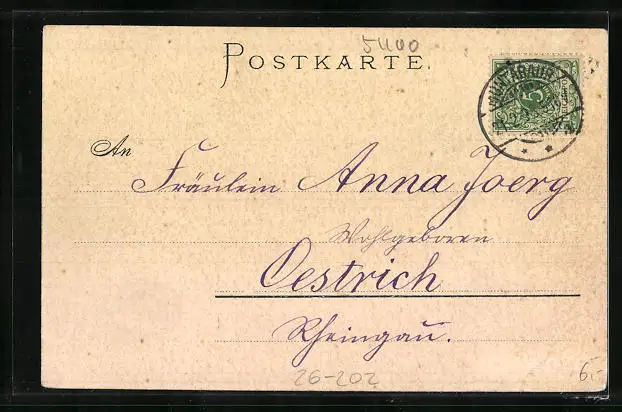 51100
POSTKARTE.
5
An
Fräulein Anna Joerg
Wohlgeboren
Oestrich
Rheingau.
26-202
6,-